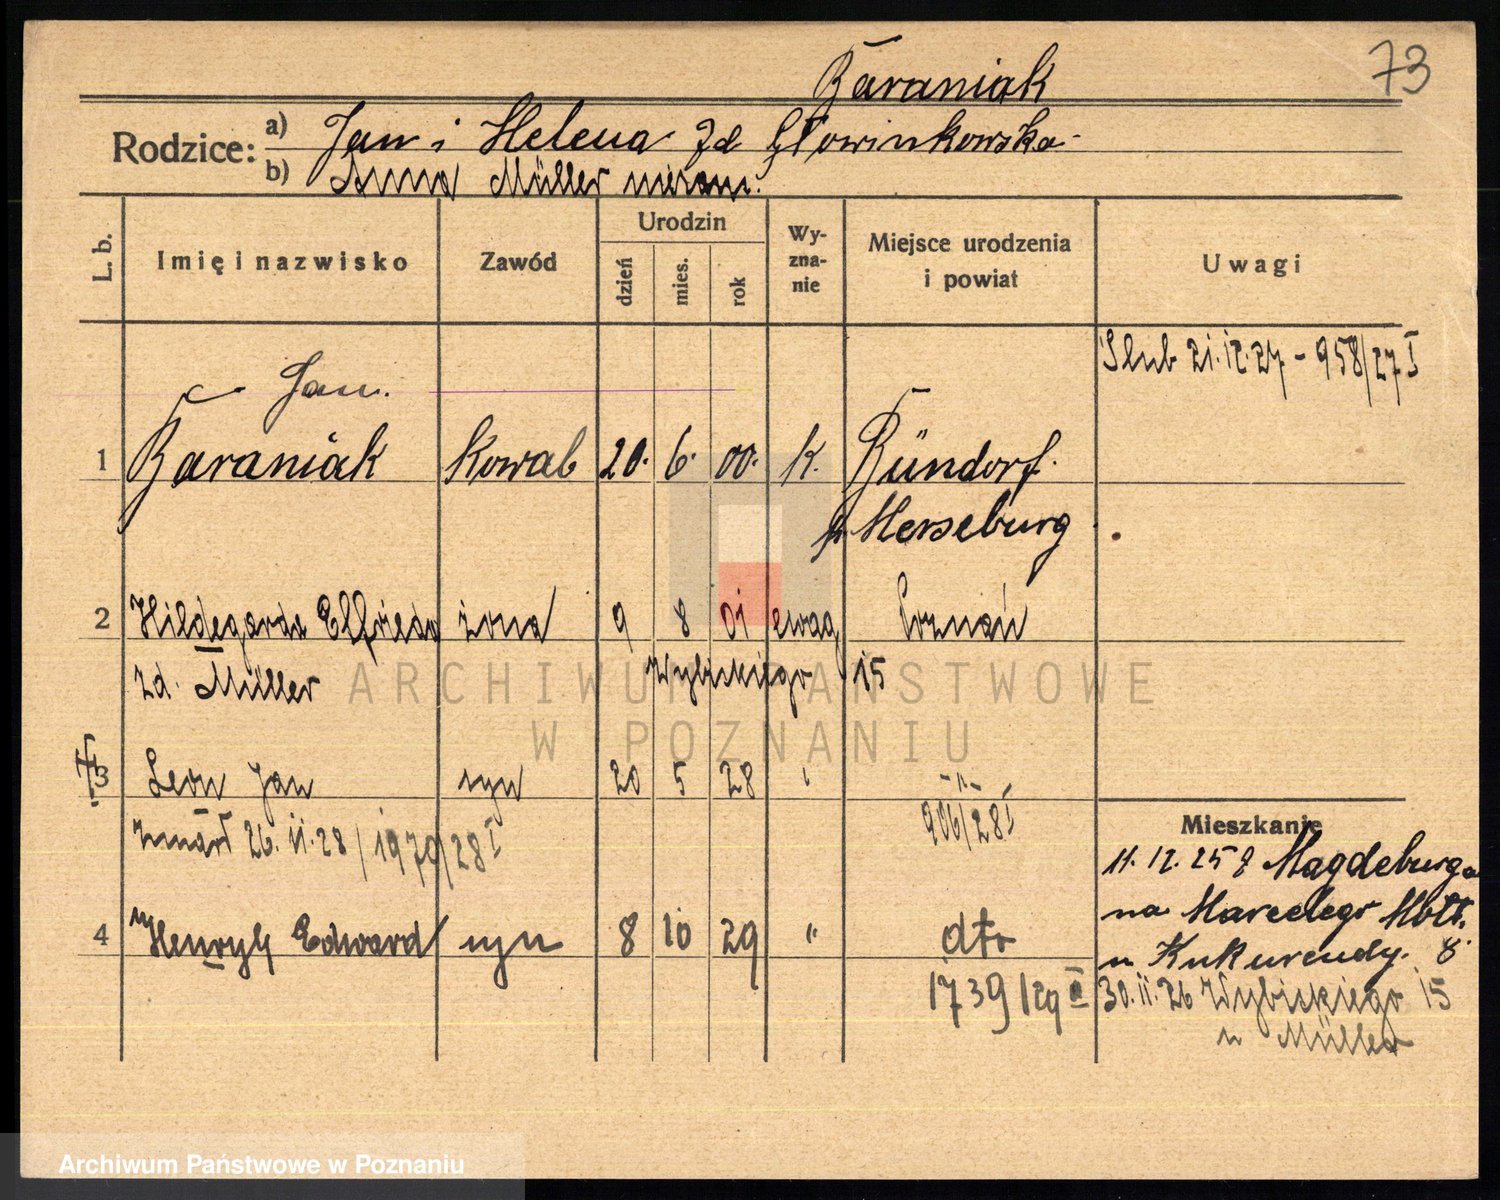 73
Baraniak
Rodzice:
a) Jan i Helena zd Głowinkowska
b) Anna Müller
L. b.
Imię i nazwisko
Zawód
Urodzin
dzień
mies.
rok
Wy-
zna-
nie
Miejsce urodzenia
i powiat
Uwagi
Ślub 21.12.27 - 958/27 I
Jan.
1 Baraniak kowal 20. 6. 00. k. Bündorf.
p. Merseburg
2 Hildegarda Elfrieda żona 9 8 01 ewag Poznań
zd. Müller Wybickiego 15
3 Leon Jan syn 20 5 28 -"-
906/28 I
zmarł 26.11.28 / 1979/28 I
Mieszkanie
11.12.25 z Magdeburga
na Marcelego Mott.
u Kukurendy. 8.
4 Henryk Edward syn 8 10 29 " dto
1739/29 II
30.11.26 Wybickiego 15
u Müller
ARCHIWUM PAŃSTWOWE
W POZNANIU
Archiwum Państwowe w Poznaniu